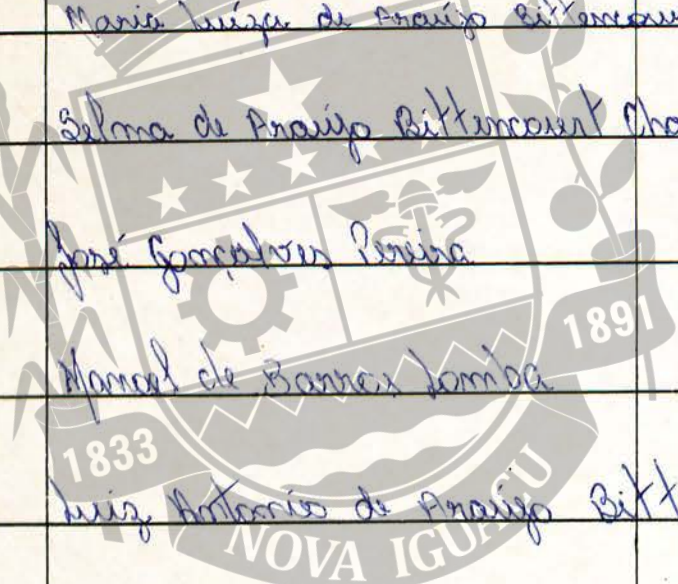 Maria Luíza de Araújo Bittencour
Selma de Araújo Bittencourt Cha
José Gonçalves Pereira
1891
Manoel de Barros Lomba
1833
Luiz Antonio de Araújo Bitt
NOVA IGUAÇU